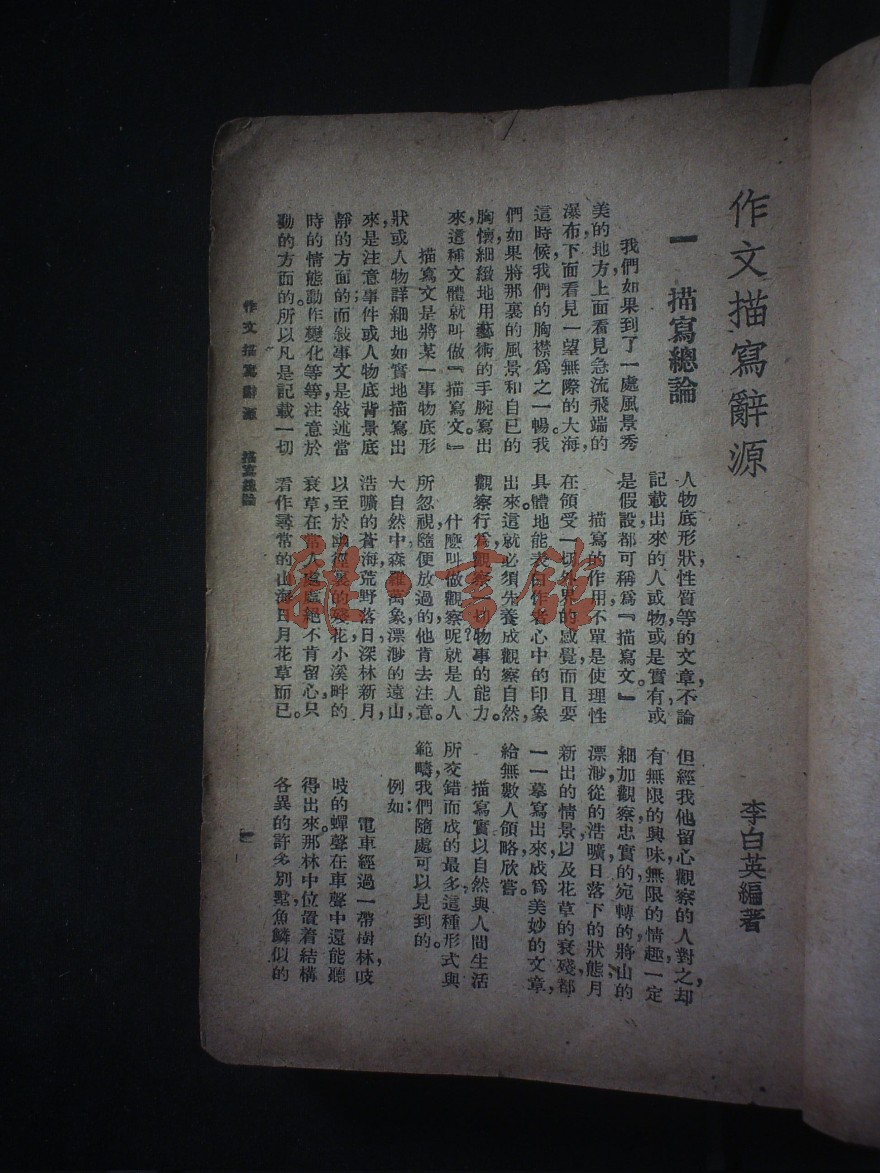 作文描寫辭源
李白英編著
一 描寫總論
我們如果到了一處風景秀
美的地方，上面看見急流飛端的
瀑布，下面看見一望無際的大海，
這時候，我們的胸襟爲之一暢。我
們如果將那裏的風景和自已的
胸懷，細緻地用藝術的手腕寫出
來，這種文體就叫做『描寫文。』
描寫文是將某一事物底形
狀或人物，詳細地如實地描寫出
來，是注意事件或人物底背景底
靜的方面的；而敍事文是敍述當
時的情態動作變化等等，注意於
動的方面的。所以凡是記載一切
人物底形狀性質等的文章，不論
記載出來的人或物，或是實有，或
是假設，都可稱爲『描寫文。』
描寫的作用，不單是使理性
在領受一切外界的感覺，而且要
具體地能表白作者心中的印象
出來。這就必須先養成觀察自然，
觀察行爲，觀察一切物事的能力。
什麽叫做觀察呢？就是人人
所忽視，隨便放過的，他肯去注意。
大自然中森羅萬象，漂渺的遠山，
浩曠的蒼海，荒野落日，深林新月，
以至於幽徑裏的殘花，小溪畔的
衰草，在常人處處絕不肯留心，只
看作尋常的山海日月花草而已。
但經我他留心觀察的人對之，却
有無限的興味，無限的情趣，一定
細加觀察，忠實的宛轉的將山的
漂渺從的浩曠，日落下的狀態，月
新出的情景，以及花草的衰殘，都
一一摹寫出來，成爲美妙的文章，
給無數人領略欣嘗。
描寫實以自然與人間生活
所交錯而成的最多，這種形式與
範疇，我們隨處可以見到的。
例如：
電車經過一帶樹林，吱
吱的蟬聲在車聲中還能聽
得出來。那林中位置着結構
各異的許多別墅，魚鱗似的
作文描寫辭源 描寫總論
一
雜·書館